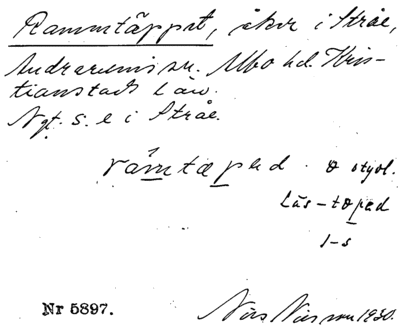 Rammtäppet, åker i Stråe,
Andrarums sn. Albo hd. Kris-
tianstads län.
Ngt. s. e i Stråe.
råmtæped . ɵ otyol.
Läs-tɵped
1-s
Nr 5897.
Nils Nilsson 1930.